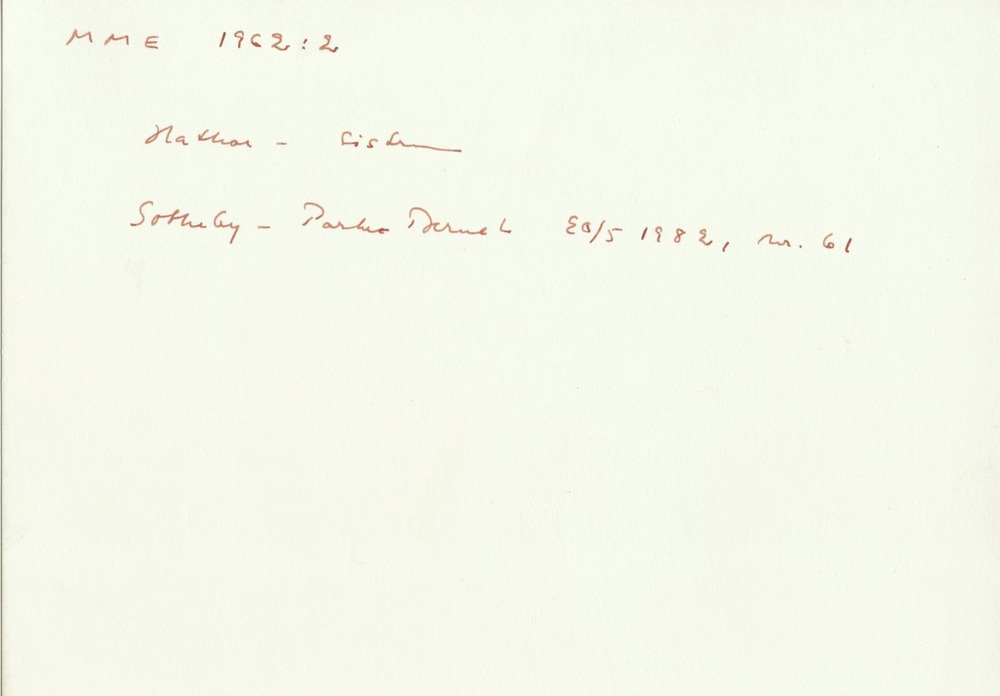 MME 1962:2
Hathor - sistrum
Sotheby - Parke Bernet 20/5 1982, nr. 61